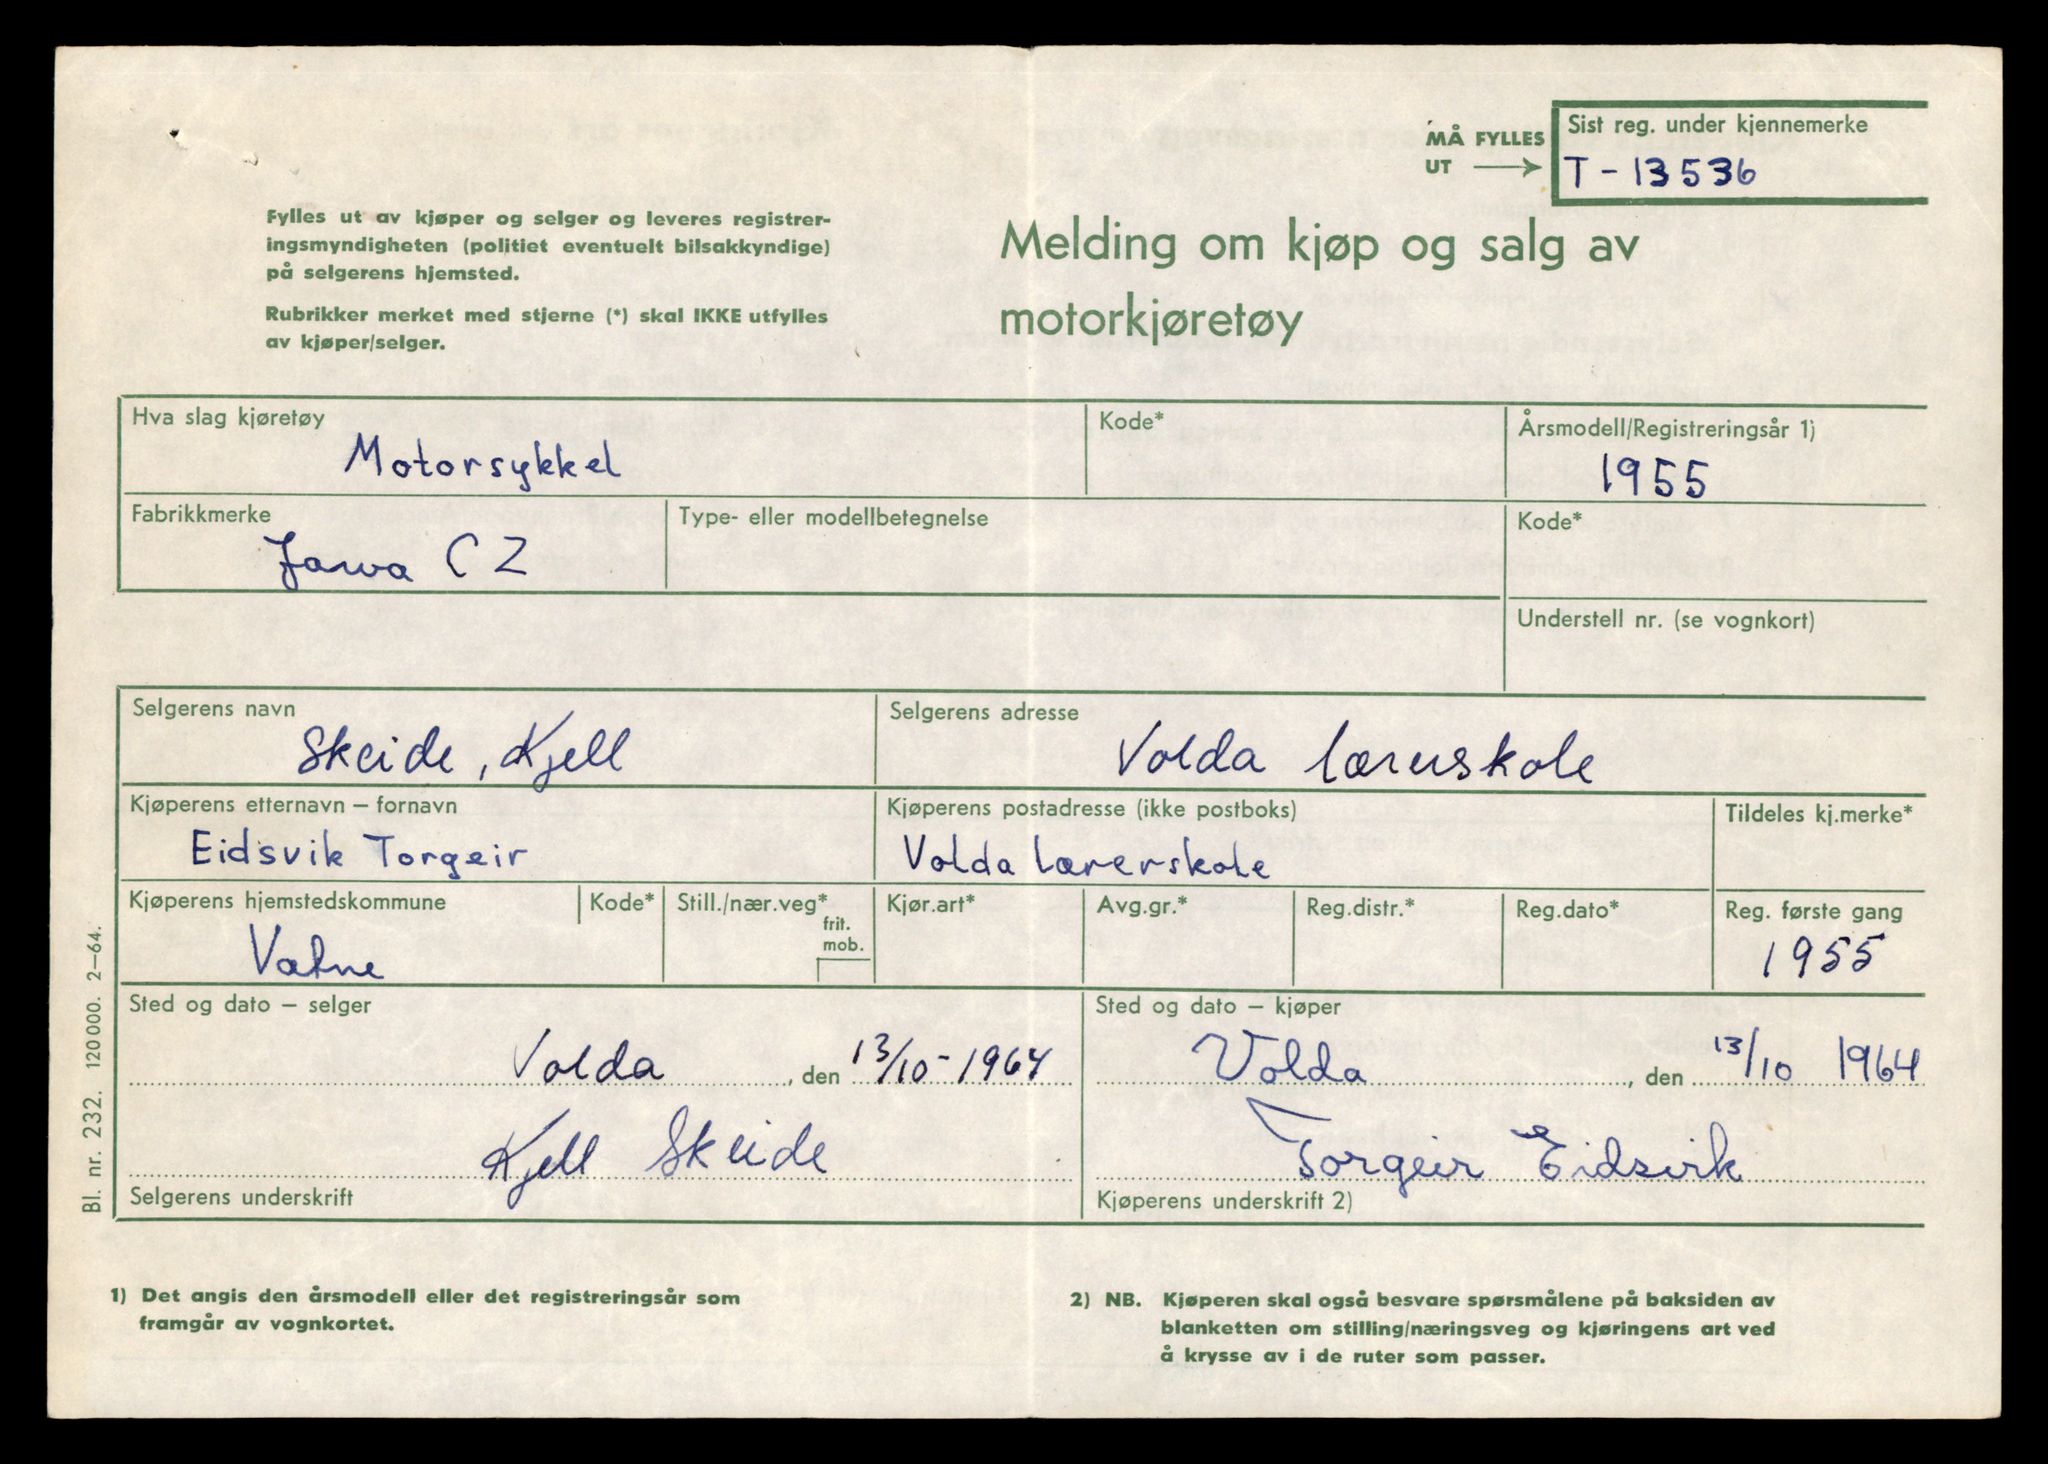 MÅ FYLLES
UT
Sist reg. under kjennemerke
T - 13536
Fylles ut av kjøper og selger og leveres registrer-
ingsmyndigheten (politiet eventuelt bilsakkyndige)
på selgerens hjemsted.
Rubrikker merket med stjerne (*) skal IKKE utfylles
av kjøper/selger.
Melding om kjøp og salg av
motorkjøretøy
Hva slag kjøretøy
Motorsykkel
Kode*
Årsmodell/Registreringsår 1)
1955
Fabrikkmerke
Jawa CZ
Type- eller modellbetegnelse
Kode*
Understell nr. (se vognkort)
Selgerens navn
Skeide, Kjell
Selgerens adresse
Volda lærerskole
Kjøperens etternavn – fornavn
Eidsvik Torgeir
Kjøperens postadresse (ikke postboks)
Volda lærerskole
Tildeles kj.merke*
Kjøperens hjemstedskommune
Vatne
Kode*
Still./nær.veg*
frit.
mob.
Kjør.art*
Avg.gr.*
Reg.distr.*
Reg.dato*
Reg. første gang
1955
Sted og dato – selger
Volda, den 13/10-1964
Kjell Skeide
Selgerens underskrift
Sted og dato – kjøper
Volda, den 13/10 1964
Torgeir Eidsvik
Kjøperens underskrift 2)
Bl. nr. 232. 120 000. 2–64.
1) Det angis den årsmodell eller det registreringsår som
framgår av vognkortet.
2) NB. Kjøperen skal også besvare spørsmålene på baksiden av
blanketten om stilling/næringsveg og kjøringens art ved
å krysse av i de ruter som passer.